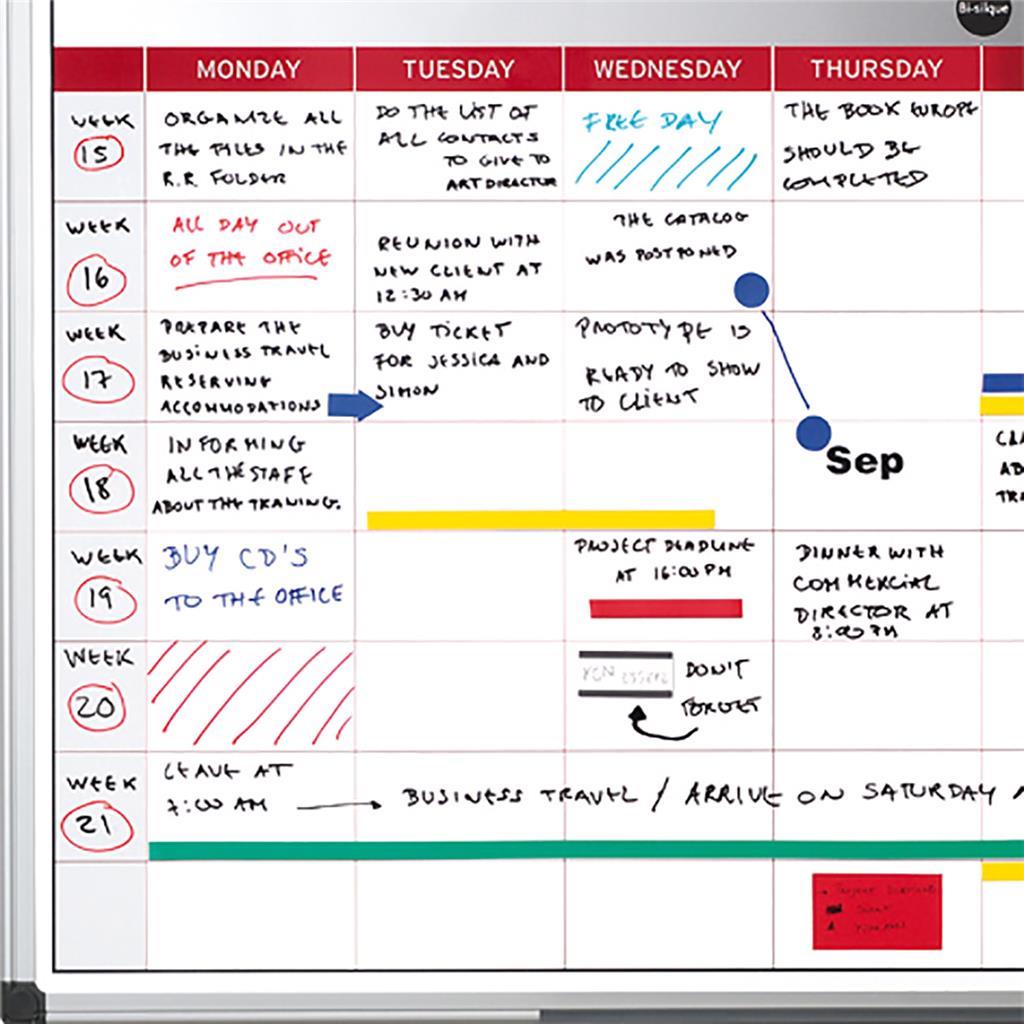 Bi-silque
MONDAY TUESDAY WEDNESDAY THURSDAY
WEEK
15
ORGANIZE ALL
THE FILES IN THE
R.R FOLDER
DO THE LIST OF
ALL CONTACTS
TO GIVE TO
ART DIRECTOR
FREE DAY
THE BOOK EUROPE
SHOULD BE
COMPLETED
WEEK
16
ALL DAY OUT
OF THE OFFICE
REUNION WITH
NEW CLIENT AT
12:30 AM
THE CATALOG
WAS POSTPONED
WEEK
17
PREPARE THE
BUSINESS TRAVEL
RESERVING
ACCOMMODATIONS
BUY TICKET
FOR JESSICA AND
SIMON
PROTOTYPE IS
READY TO SHOW
TO CLIENT
WEEK
18
INFORMING
ALL THE STAFF
ABOUT THE TRANING.
Sep
CLA
AB
TRA
WEEK
19
BUY CD'S
TO THE OFFICE
PROJECT DEADLINE
AT 16:00 PM
DINNER WITH
COMMERCIAL
DIRECTOR AT
8:00 PM
WEEK
20
DON'T
FORGET
WEEK
21
LEAVE AT
7:00 AM
BUSINESS TRAVEL / ARRIVE ON SATURDAY